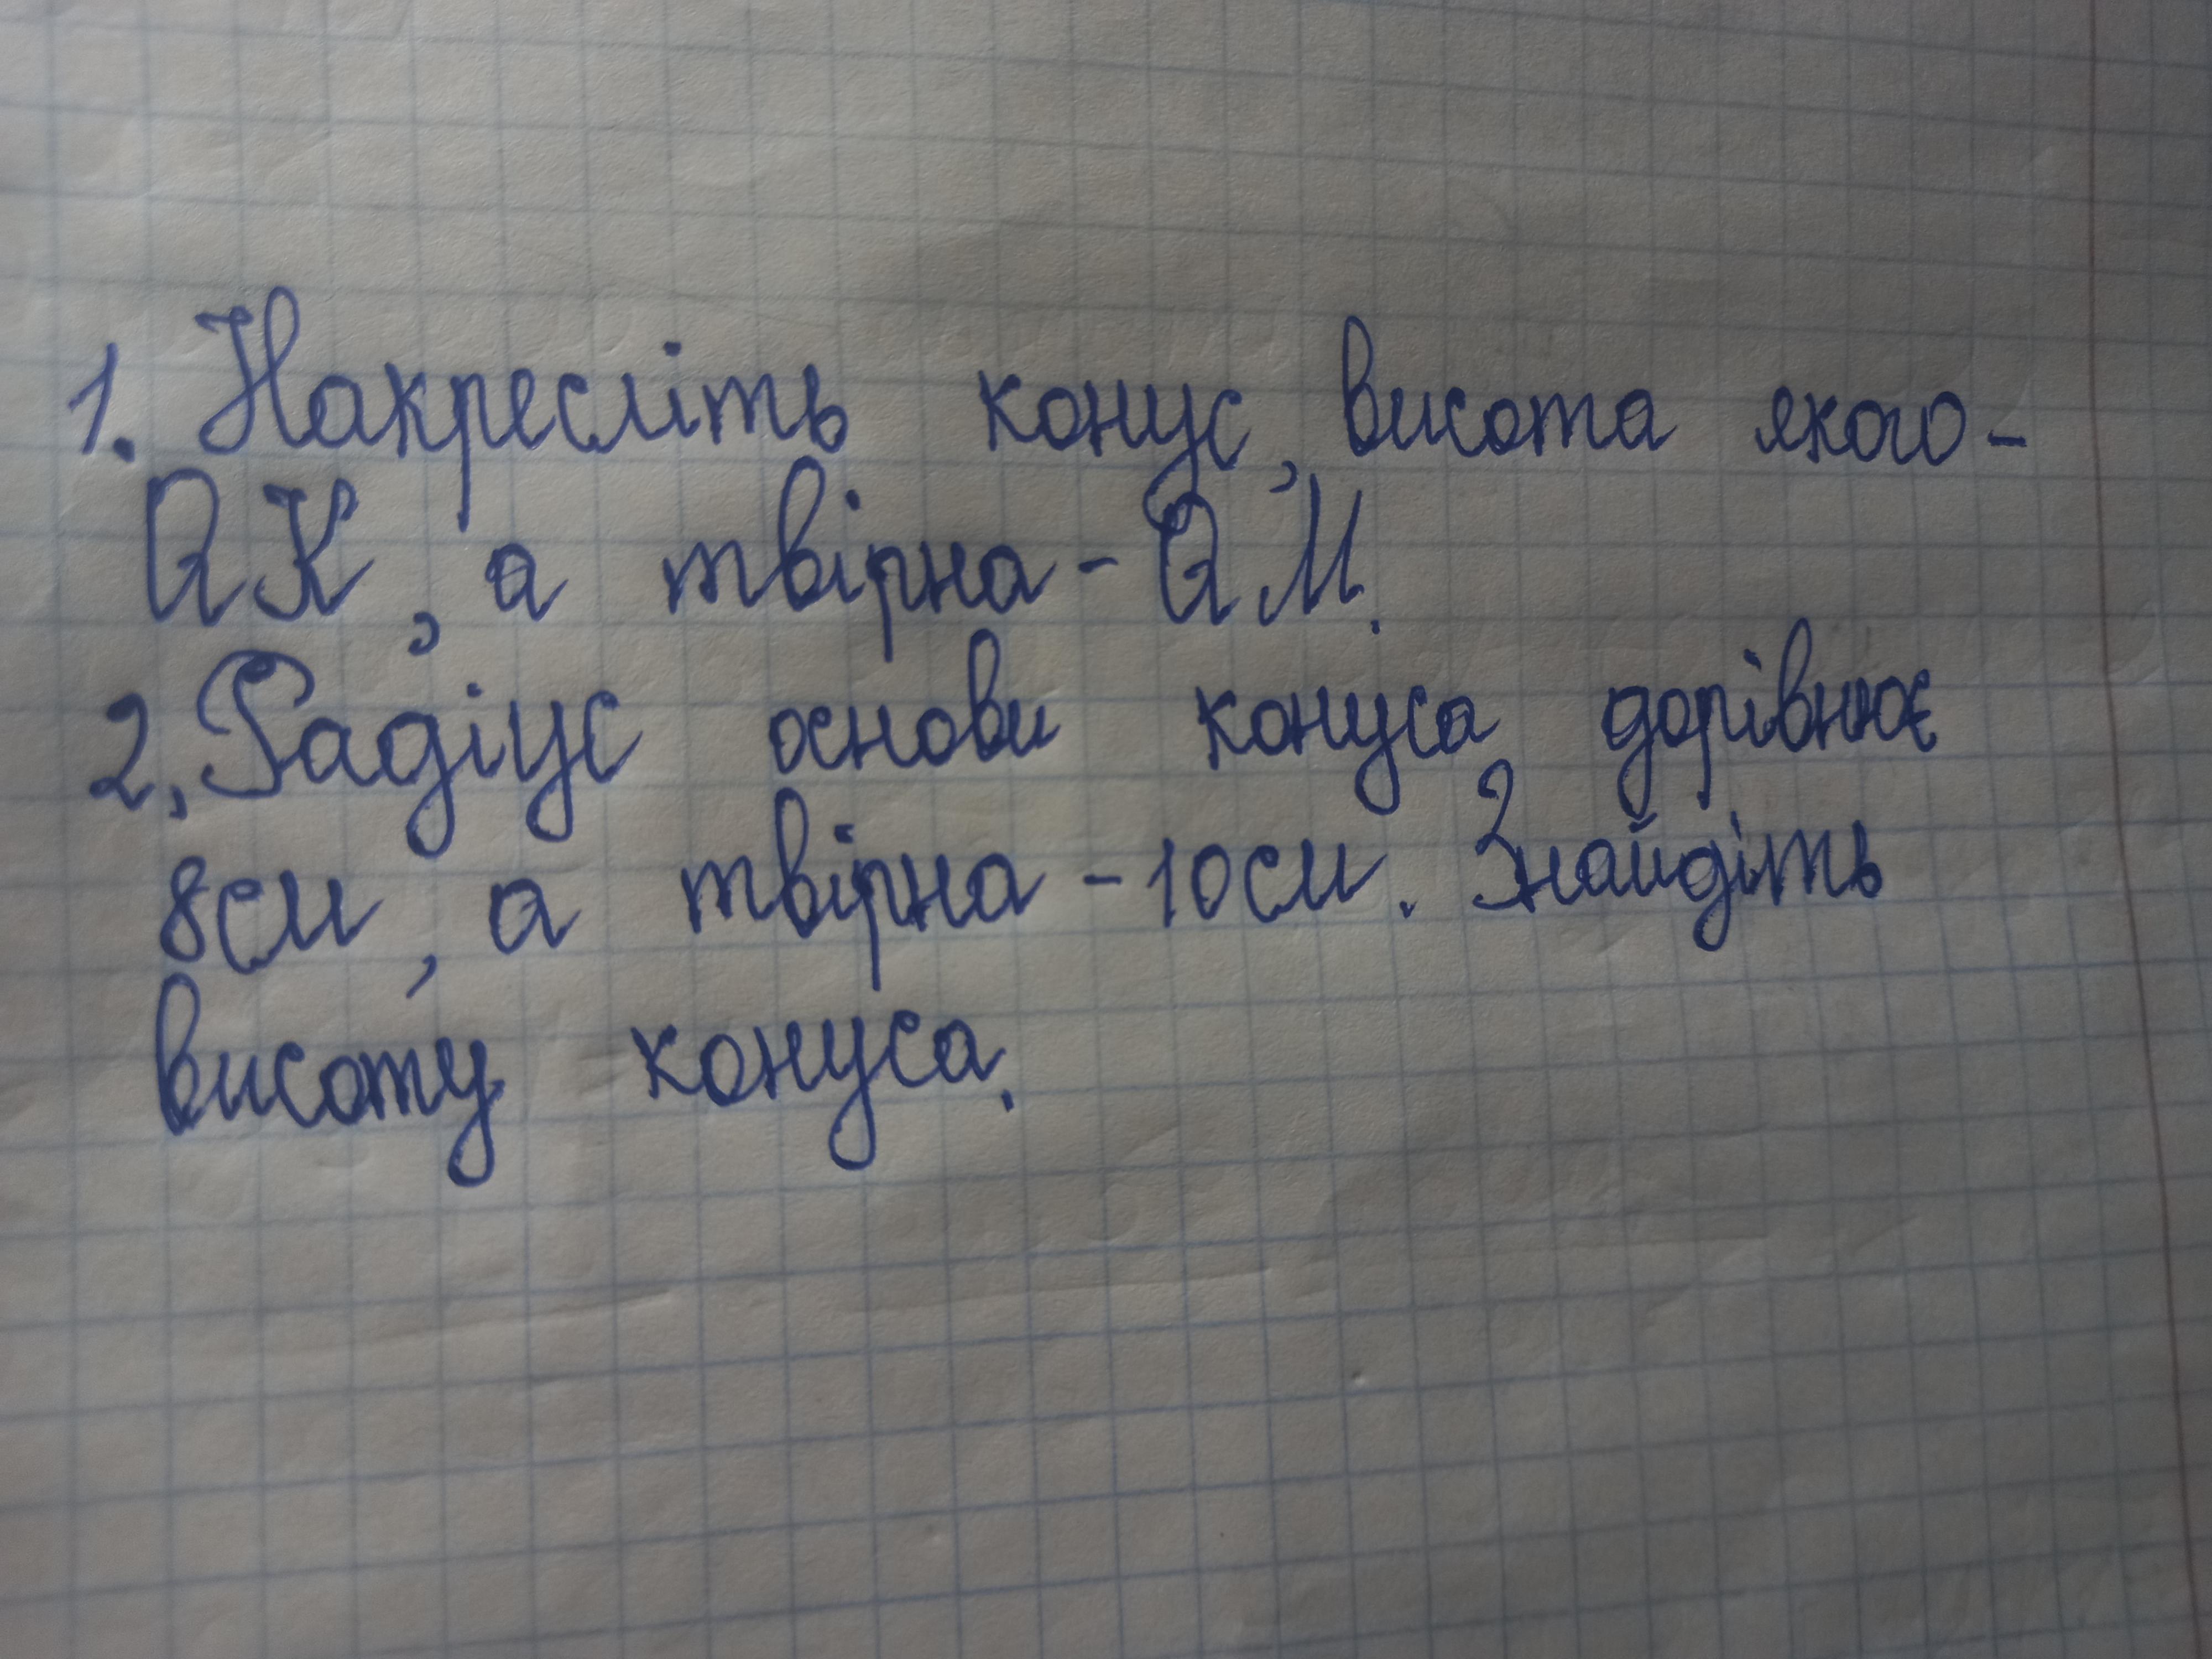 1. Накресліть конус, висота якого -
QК, а твірна - QМ.
2. Радіус основи конуса дорівнює
8см, а твірна - 10см. Знайдіть
висоту конуса.